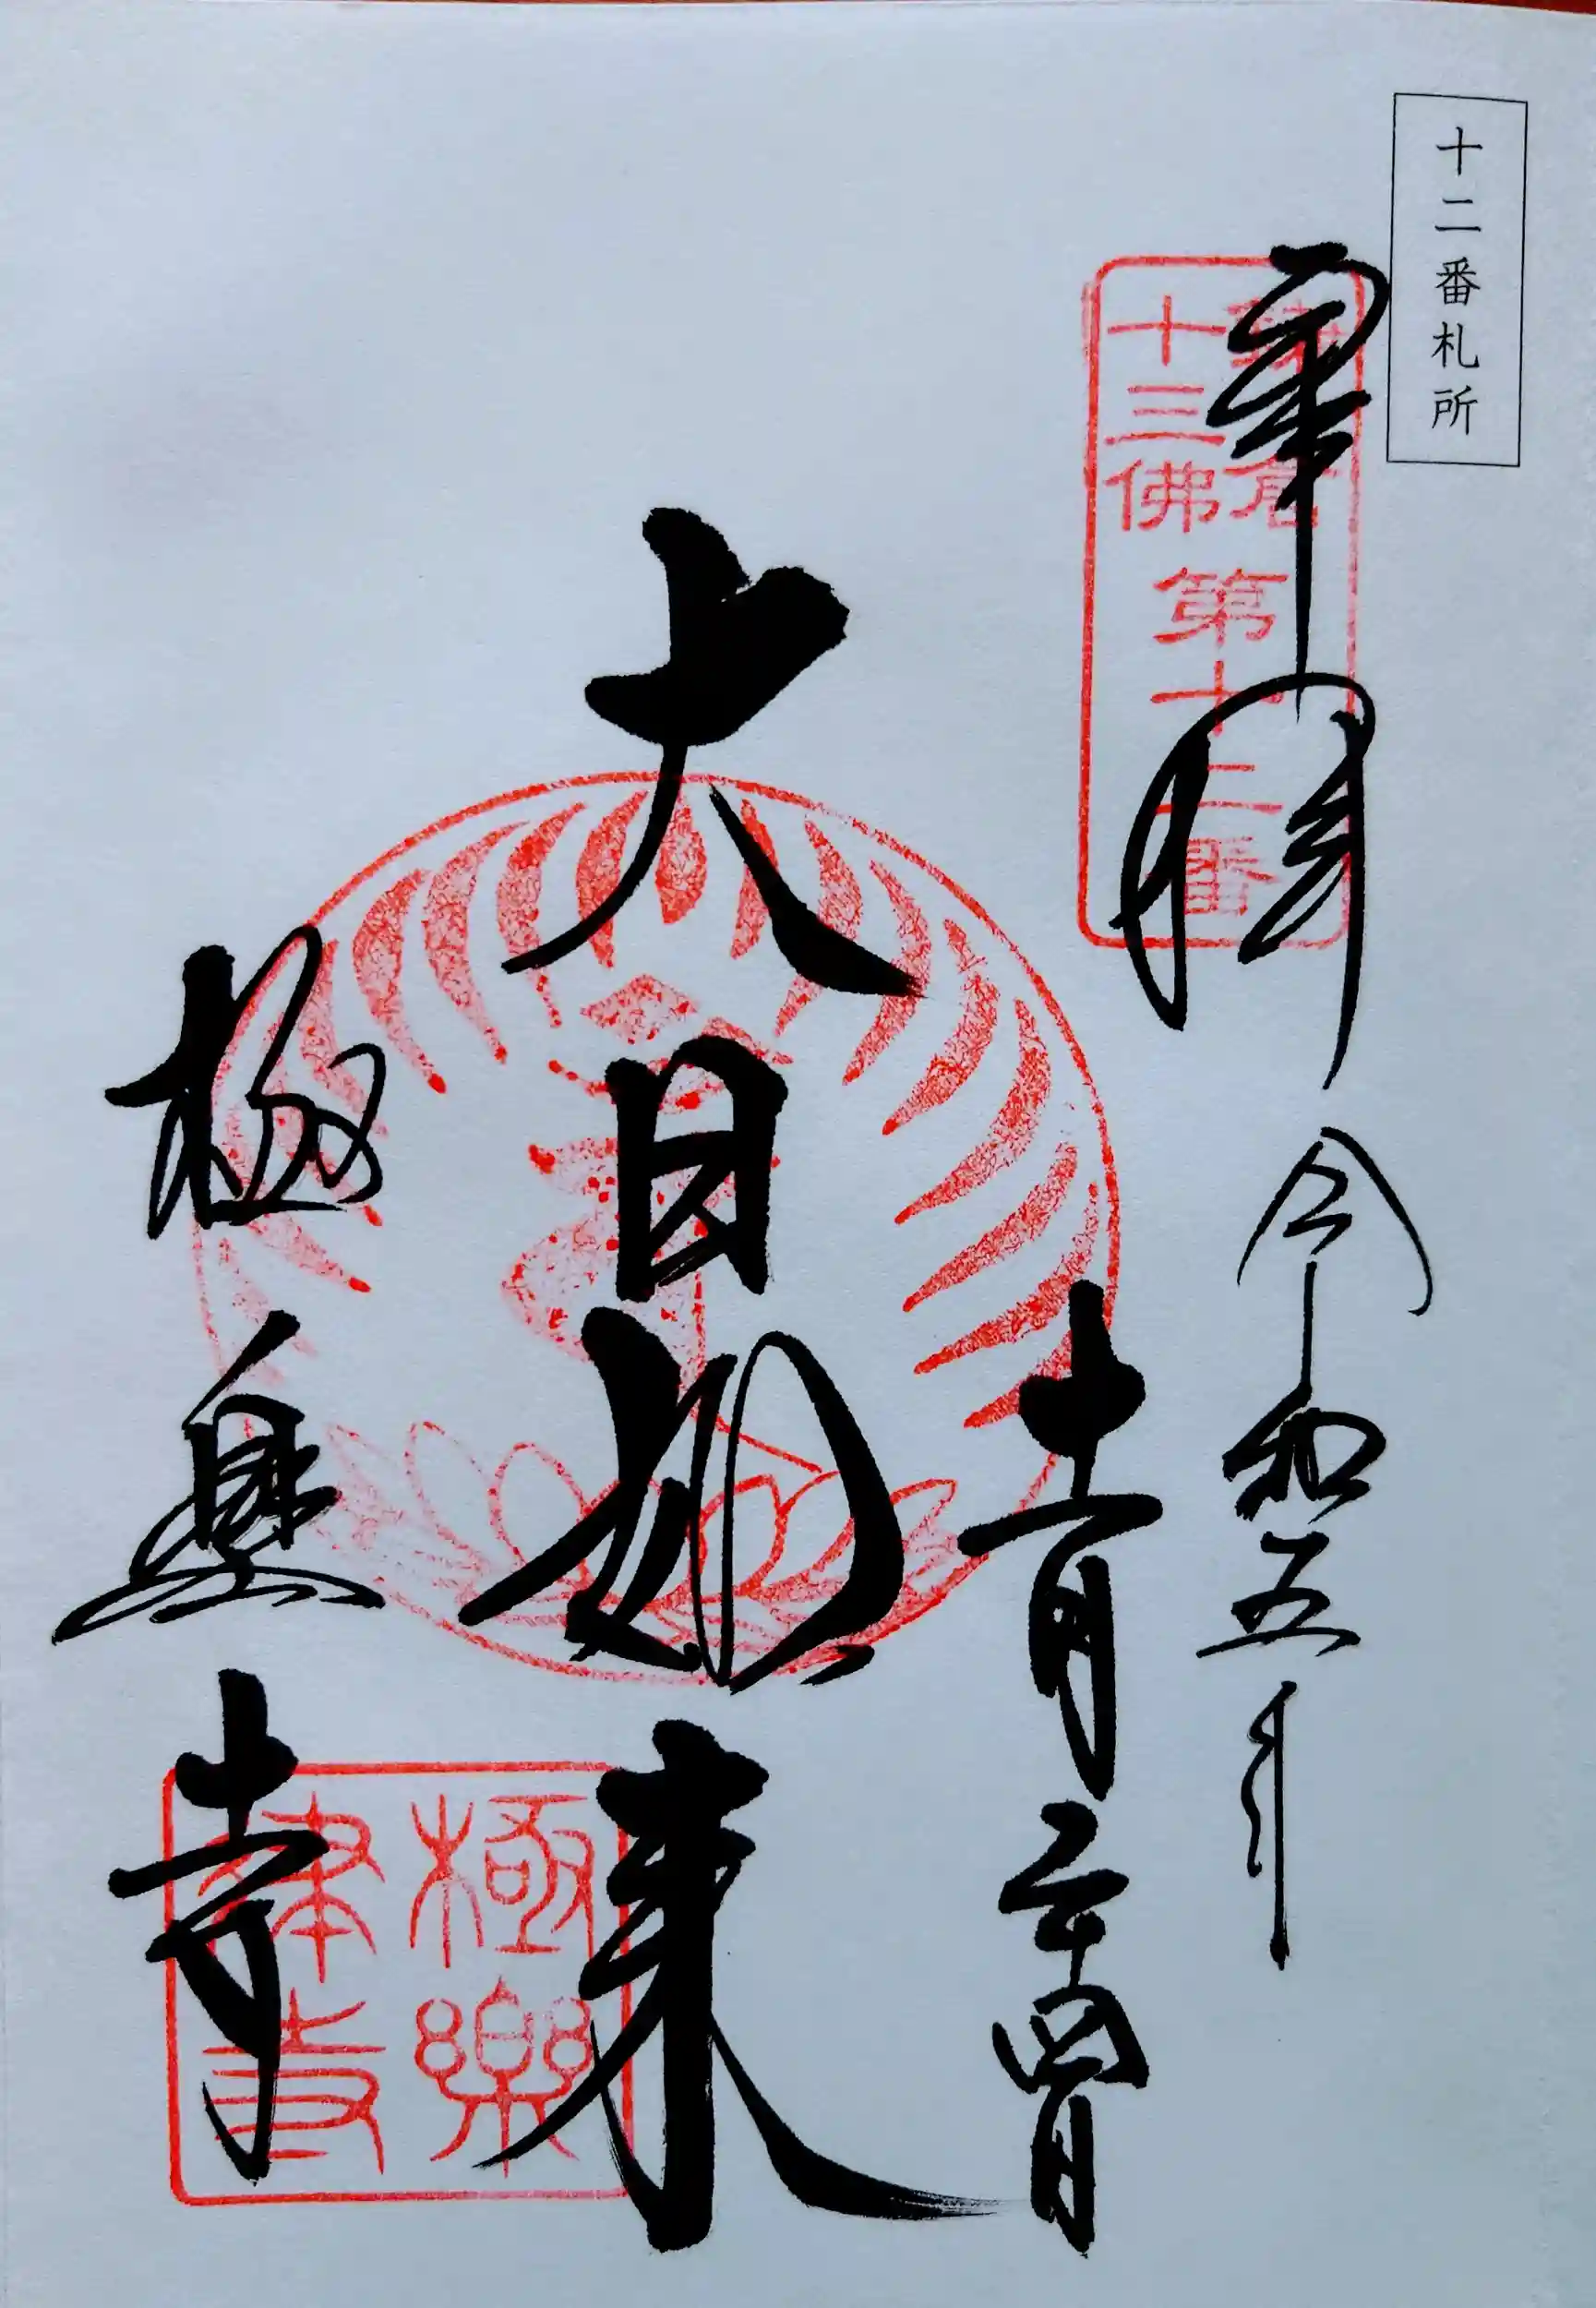 十二番札所
奉拝
鎌倉
十三佛
第十二番
令和五年
十一月二十四日
大日如来
極楽寺
極樂
律寺